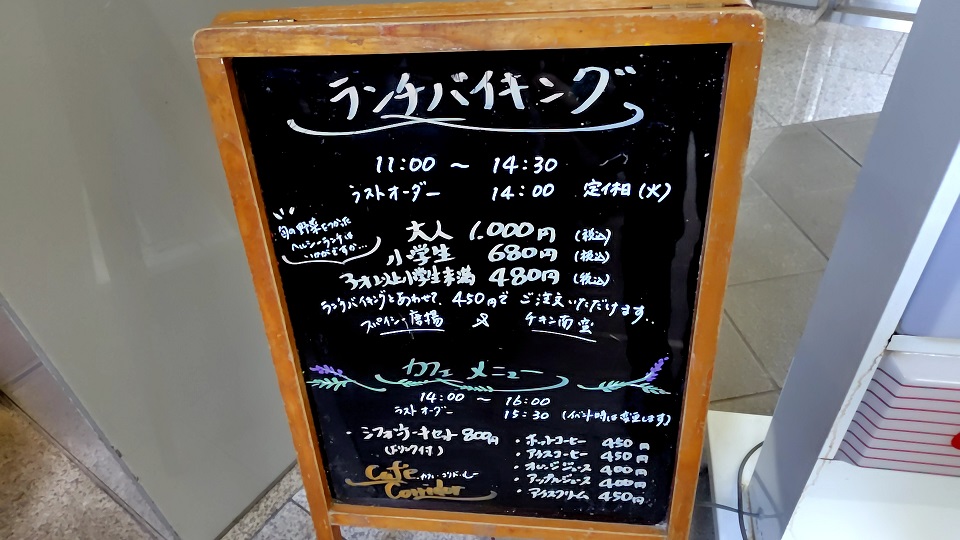 ランチバイキング
11:00 ～ 14:30
ラストオーダー 14:00 定休日(火)
旬の野菜をつかった
ヘルシーランチは
いかがですか…
大人 1.000円 (税込)
小学生 680円 (税込)
3才以上小学生未満 480円 (税込)
ランチバイキングとあわせて、450円で ご注文いただけます..
スパイシー唐揚 チキン南蛮
カフェ メニュー
14:00 ～ 16:00
ラストオーダー 15:30 (イベント時は変更します)
・シフォンケーキセット 800円
(ドリンク付)
・ホットコーヒー 450円
・アイスコーヒー 450円
・オレンジジュース 400円
・アップルジュース 400円
・アイスクリーム 450円
Cafe カフェ・コリドール
Corridor